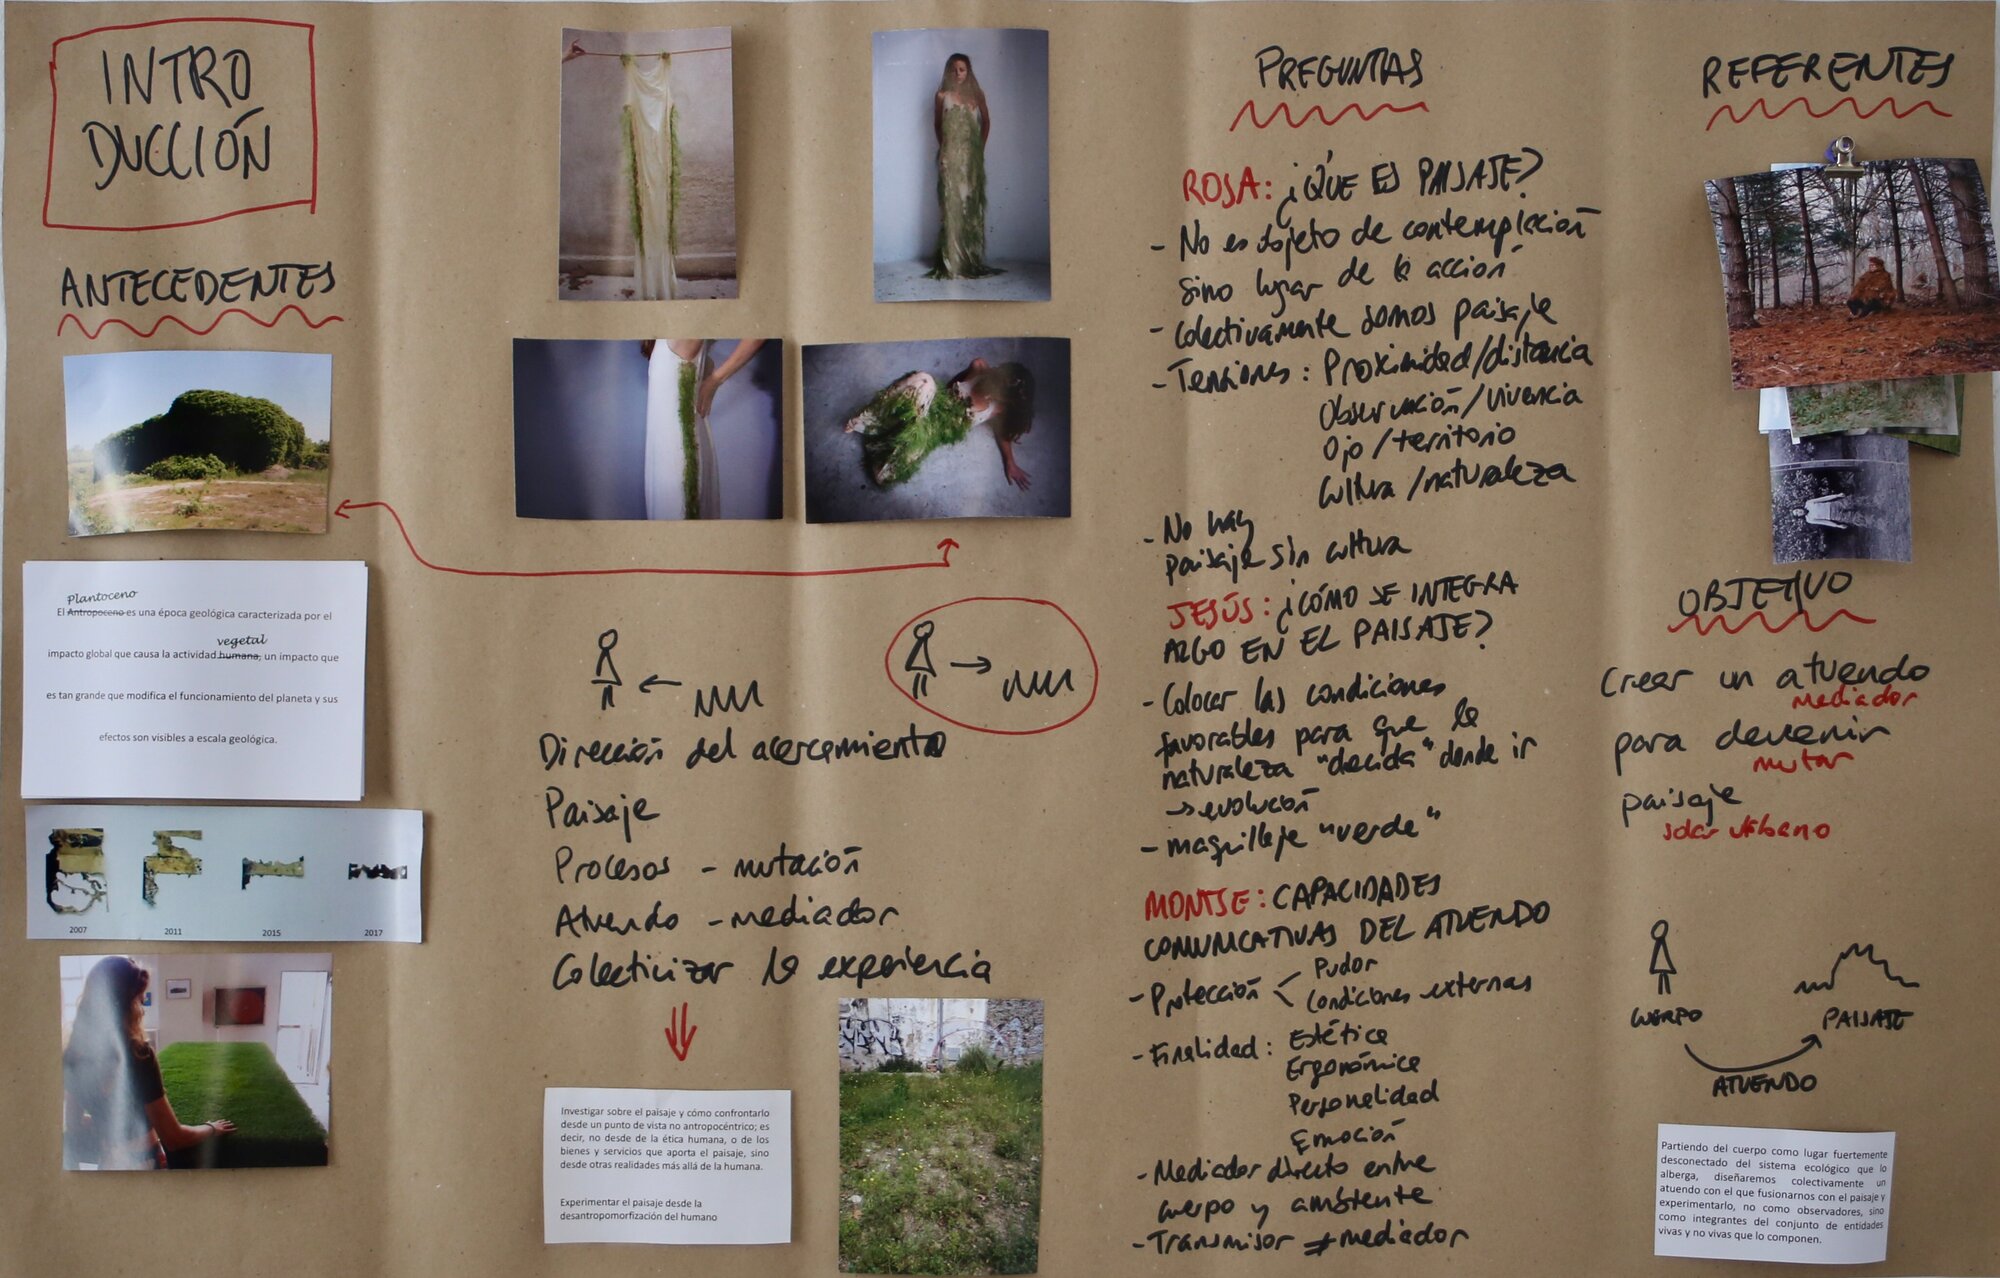 INTRO
DUCCIÓN
ANTECEDENTES
Plantoceno
El Antropoceno es una época geológica caracterizada por el
vegetal
impacto global que causa la actividad humana, un impacto que
es tan grande que modifica el funcionamiento del planeta y sus
efectos son visibles a escala geológica.
2007 2011 2015 2017
Dirección del acercamiento
Paisaje
Procesos - mutación
Atuendo - mediador
Colectivizar la experiencia
Investigar sobre el paisaje y cómo confrontarlo
desde un punto de vista no antropocéntrico; es
decir, no desde de la ética humana, o de los
bienes y servicios que aporta el paisaje, sino
desde otras realidades más allá de la humana.
Experimentar el paisaje desde la
desantropomorfización del humano
PREGUNTAS
ROSA: ¿QUE ES PAISAJE?
- No es objeto de contemplación
sino lugar de la acción
- Colectivamente somos paisaje
- Tensiones: Proximidad/distancia
Observación/vivencia
Ojo/territorio
Cultura/naturaleza
- No hay
paisaje sin cultura
JESÚS: ¿CÓMO SE INTEGRA
ALGO EN EL PAISAJE?
- Colocar las condiciones
favorables para que la
naturaleza "decida" donde ir
→ evolución
- maquillaje "verde"
MONTSE: CAPACIDADES
COMUNICATIVAS DEL ATUENDO
- Protección < Pudor
Condiciones externas
- Finalidad: Estética
Ergonómica
Personalidad
Emoción
- Mediador directo entre
cuerpo y ambiente
- Transmisor ≠ mediador
REFERENTES
OBJETIVO
Crear un atuendo
mediador
para devenir
mutar
paisaje
solar urbano
CUERPO PAISAJE
ATUENDO
Partiendo del cuerpo como lugar fuertemente
desconectado del sistema ecológico que lo
alberga, diseñaremos colectivamente un
atuendo con el que fusionarnos con el paisaje y
experimentarlo, no como observadores, sino
como integrantes del conjunto de entidades
vivas y no vivas que lo componen.